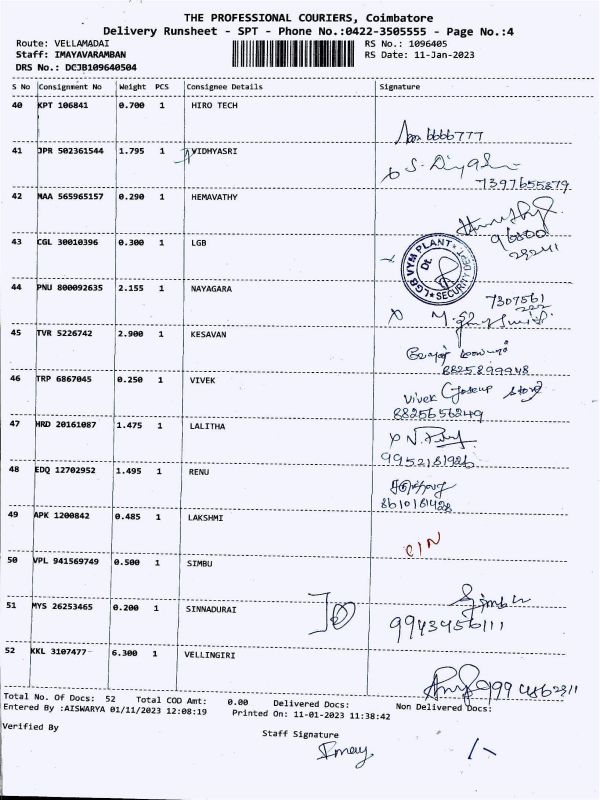 THE PROFESSIONAL COURIERS, Coimbatore
Delivery Runsheet - SPT - Phone No.:0422-3505555 - Page No.:4
Route: VELLAMADAI RS No.: 1096405
Staff: IMAYAVARAMBAN RS Date: 11-Jan-2023
DRS No.: DCJB109640504
S No Consignment No Weight PCS Consignee Details Signature
40 KPT 106841 0.700 1 HIRO TECH
6666777
41 JPR 502361544 1.795 1 VIDHYASRI
7397655879
42 MAA 565965157 0.290 1 HEMAVATHY
43 CGL 30010396 0.300 1 LGB
LGB VYM PLANT SECURITY DEPT
44 PNU 800092635 2.155 1 NAYAGARA
7307561
222
45 TVR 5226742 2.900 1 KESAVAN
8825899948
46 TRP 6867045 0.250 1 VIVEK
Vivek
8825656249
47 HRD 20161087 1.475 1 LALITHA
9952181926
48 EDQ 12702952 1.495 1 RENU
8610181428
49 APK 1200842 0.485 1 LAKSHMI
CIN
50 VPL 941569749 0.500 1 SIMBU
Simbu
51 MYS 26253465 0.200 1 SINNADURAI
9943456111
52 KKL 3107477 6.300 1 VELLINGIRI
Total No. Of Docs: 52 Total COD Amt: 0.00 Delivered Docs: Non Delivered Docs:
Entered By :AISWARYA 01/11/2023 12:08:19 Printed On: 11-01-2023 11:38:42
Verified By Staff Signature